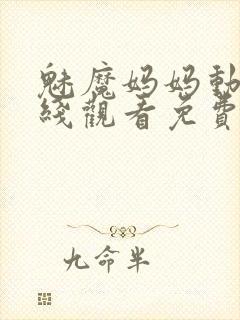 魅魔妈妈動
綫觀看免費
九命半